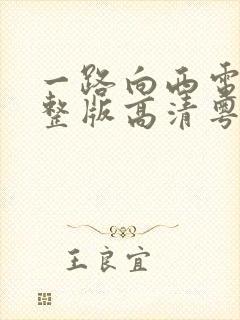 一路向西電
整版高清粵
王良宜